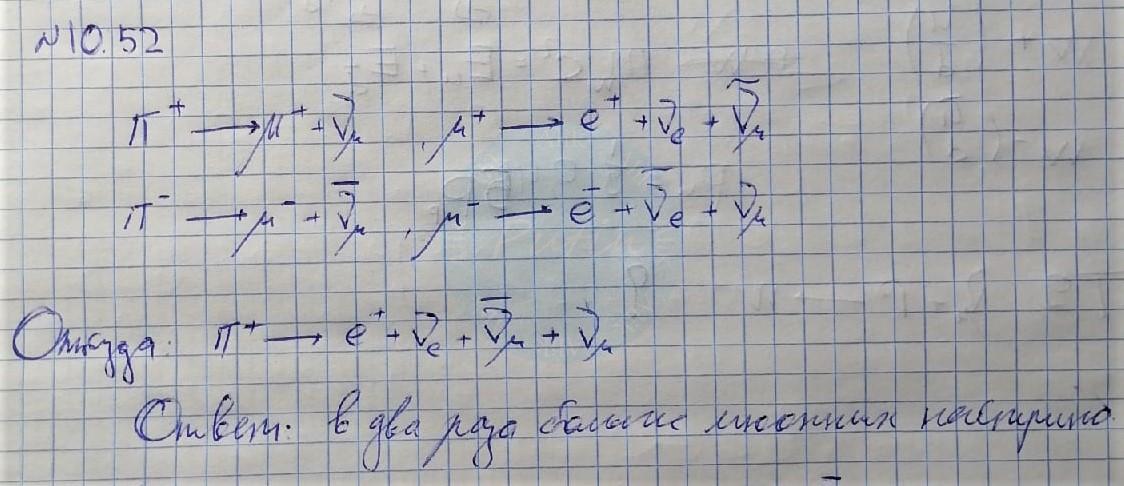 №10.52
π⁺ ⟶ μ⁺ + ν_μ , μ⁺ ⟶ e⁺ + ν_e + ν̅_μ
π⁻ ⟶ μ⁻ + ν̅_μ , μ⁻ ⟶ e⁻ + ν̅_e + ν_μ
Откуда: π⁺ ⟶ e⁺ + ν_e + ν̅_μ + ν_μ
Ответ: в два раза больше мюонных нейтрино.